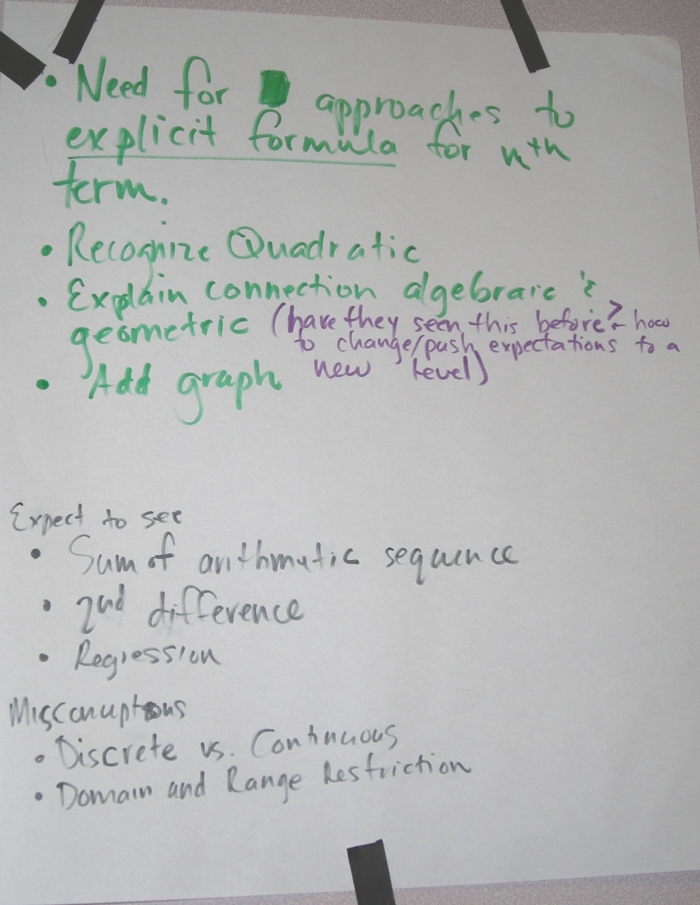 • Need for approaches to
explicit formula for nth
term.
• Recognize Quadratic
• Explain connection algebraic &
geometric (have they seen this before? - how
to change/push expectations to a
new level)
• Add graph
Expect to see
• Sum of arithmatic sequence
• 2nd difference
• Regression
Misconceptions
• Discrete vs. Continuous
• Domain and Range Restriction